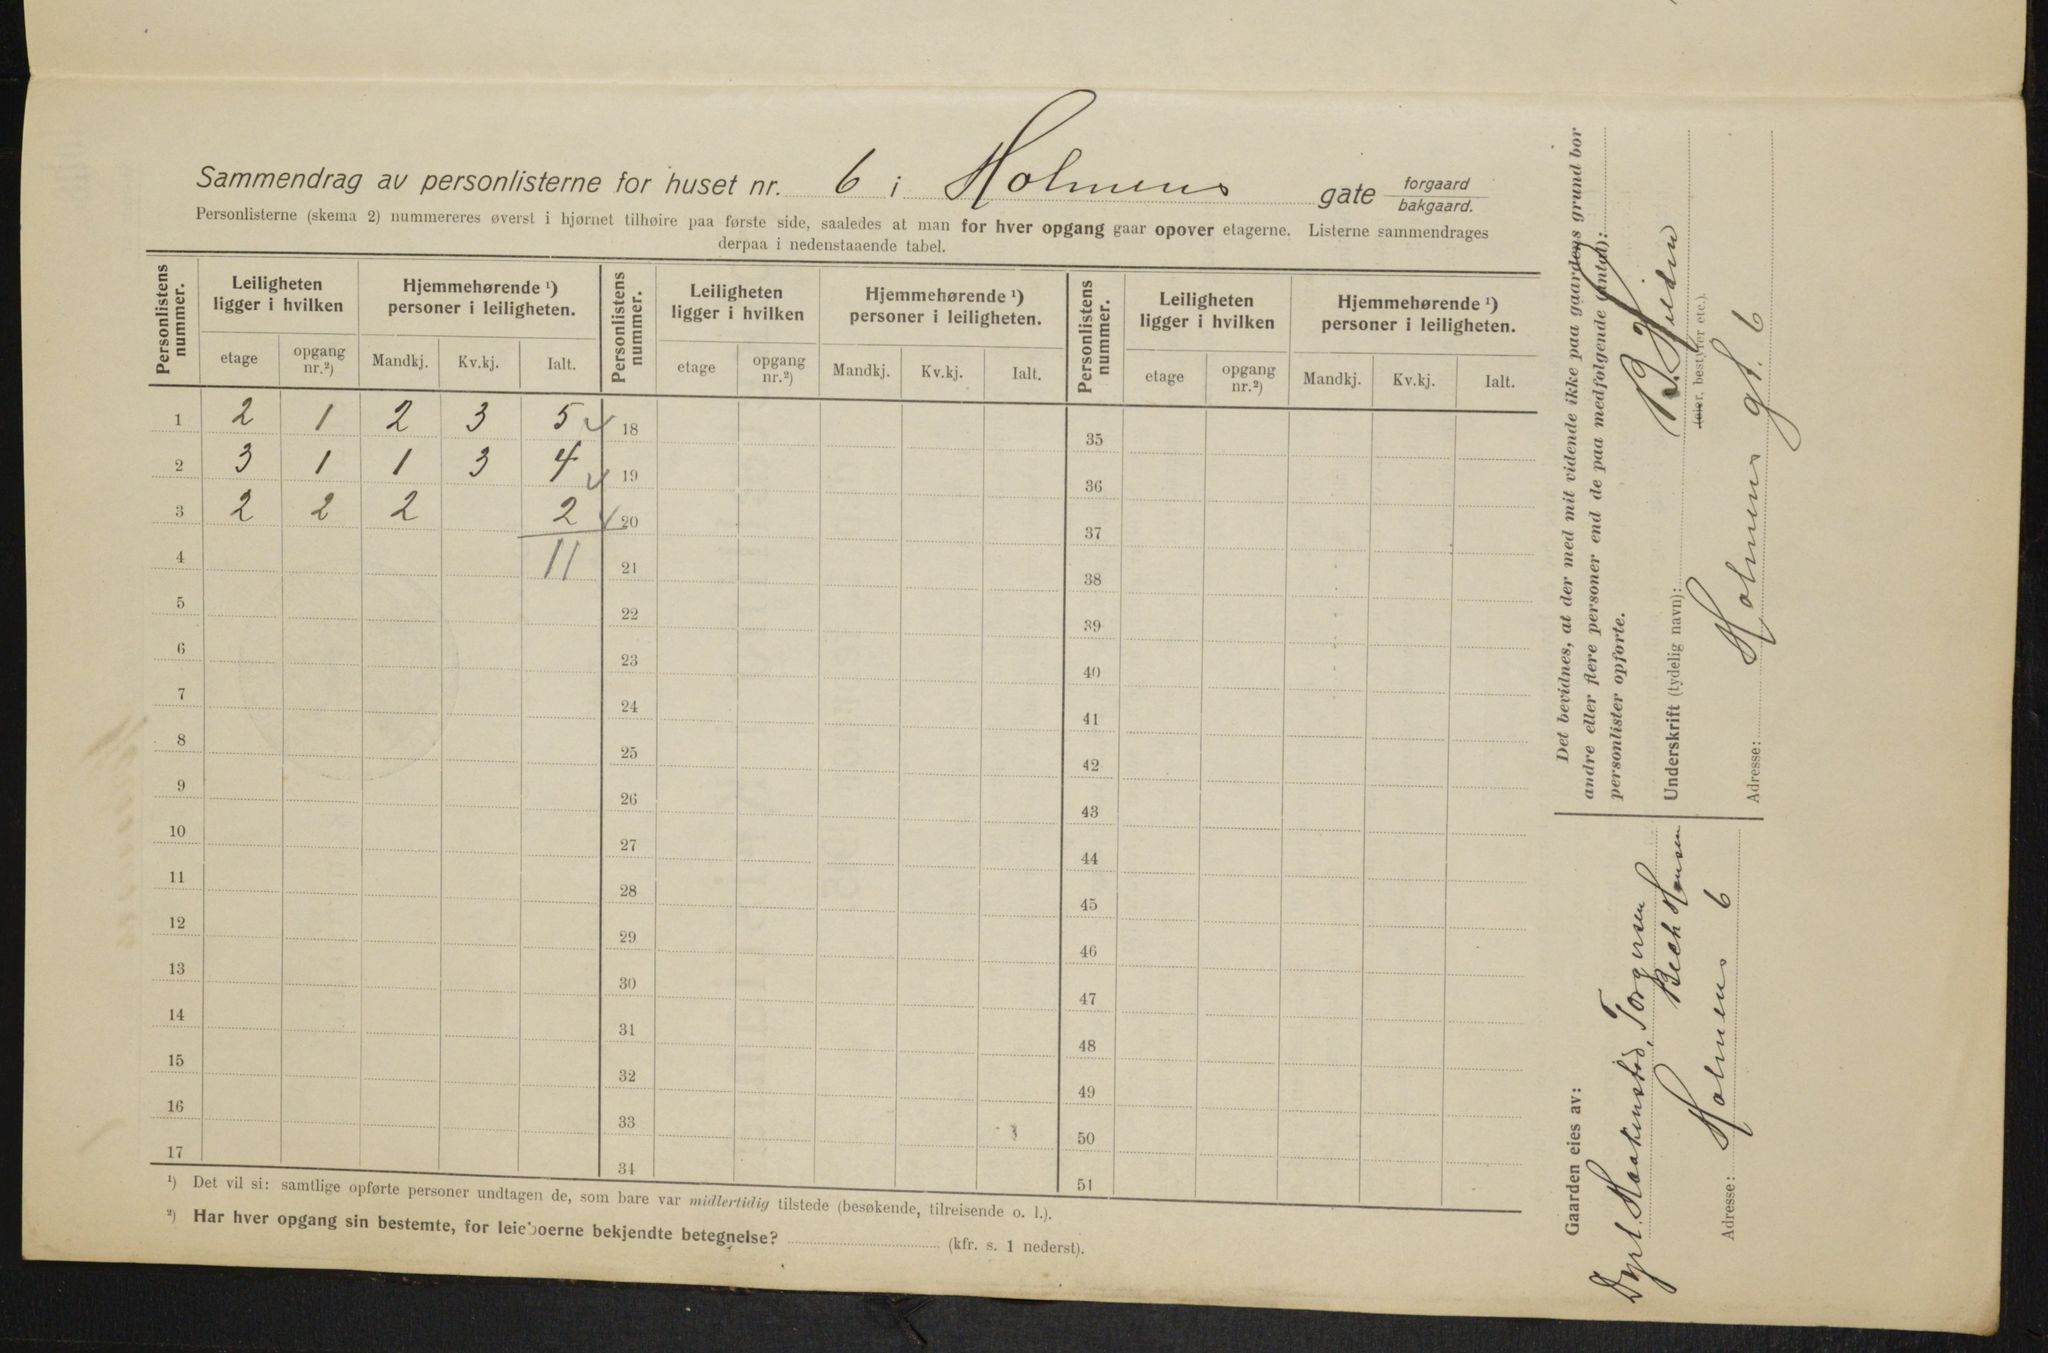 Sammendrag av personlisterne for huset nr. 6 i Holmens gate forgaard bakgaard.
Personlisterne (skema 2) nummereres øverst i hjørnet tilhøire paa første side, saaledes at man for hver opgang gaar opover etagerne. Listerne sammendrages
derpaa i nedenstaaende tabel.
Personlistens nummer. Leiligheten ligger i hvilken Hjemmehørende ¹) personer i leiligheten. Personlistens nummer. Leiligheten ligger i hvilken Hjemmehørende ¹) personer i leiligheten. Personlistens nummer. Leiligheten ligger i hvilken Hjemmehørende ¹) personer i leiligheten.
etage opgang nr.²) Mandkj. Kv.kj. Ialt. etage opgang nr.²) Mandkj. Kv.kj. Ialt. etage opgang nr.²) Mandkj. Kv.kj. Ialt.
1 2 1 2 3 5 18 35
2 3 1 1 3 4 19 36
3 2 2 2 2 20 37
4 11 21 38
5 22 39
6 23 40
7 24 41
8 25 42
9 26 43
10 27 44
11 28 45
12 29 46
13 30 47
14 31 48
15 32 49
16 33 50
17 34 51
¹) Det vil si: samtlige opførte personer undtagen de, som bare var midlertidig tilstede (besøkende, tilreisende o. l.).
²) Har hver opgang sin bestemte, for leieboerne bekjendte betegnelse? (kfr. s. 1 nederst).
Det bevidnes, at der med mit vidende ikke paa gaardens grund bor
andre eller flere personer end de paa medfølgende (antal):
personlister opførte.
Underskrift (tydelig navn):
(eier, bestyrer etc.).
Adresse: Holmens gt. 6
Gaarden eies av:
Torgersen
Bech Hansen
Adresse: Holmens 6